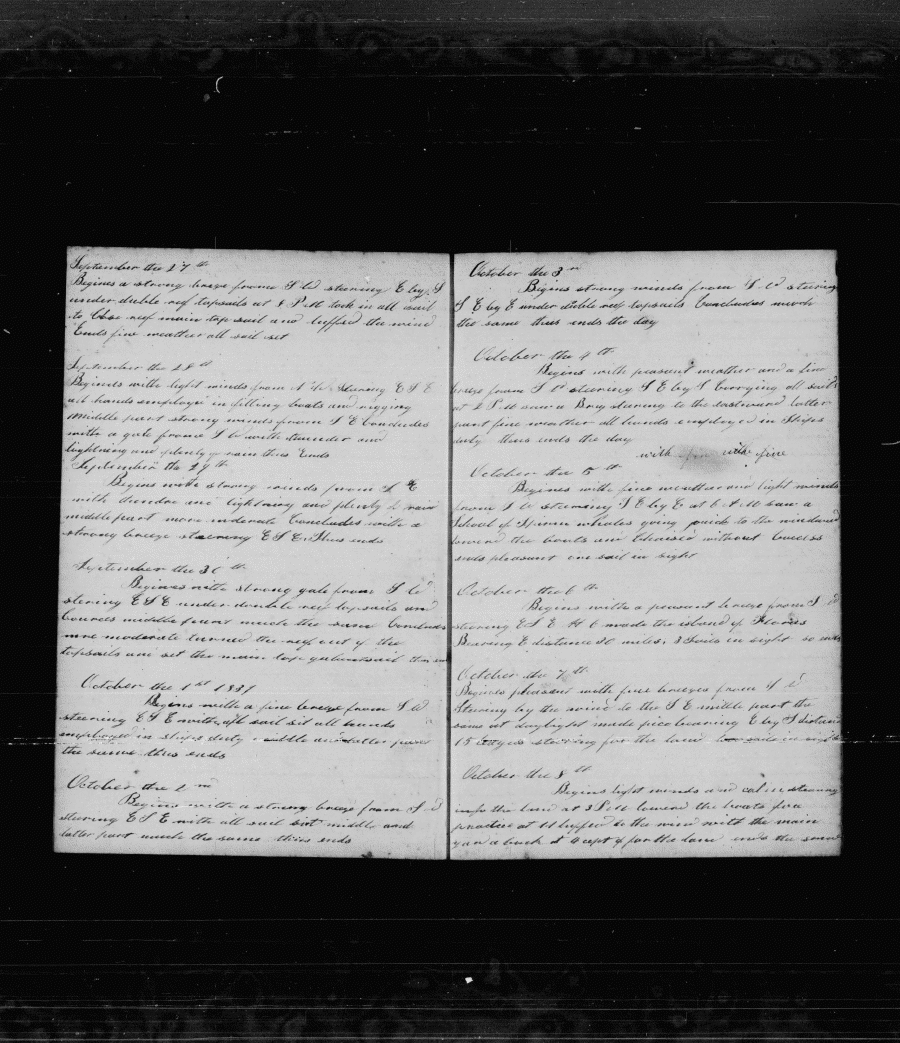 September the 27th
Begines a strong breze frome S W stering E by S
under duble reef topsails at 8 P.M took in all sail
to Close reef main top sail and luffed the wind
Ends fine weather all sail set
September the 28th
Begines with light winds from stering E S E
all hands employe in fitting boats and rigging
middle part strong winds from S E Concludes
with a gale frome S W with thunder and
lightning and plenty of rain thus Ends
September the 29th
Begins with strong winds from S
with thunder and lightning and plenty of rain
middle part more moderate Concludes with a
strong breeze steering E S E Thus ends
September the 30th
Begines with strong gale from S W
stering E S E under double reef topsails and
Courses middle part much the same Concludes
more moderate turned the reef out of the
topsails and set the main top galantsail thus end
October the 1st 1837
Begins with a fine breeze from S W
steering E S E with all sail sit all hands
employed in ships duty middle and latter part
the same this ends
October the 2nd
Begins with a strong breeze from S W
stering E S E with all sail set middle and
latter part much the same this ends
October the 3rd
Begins strong winds from S W steering
S E by E under duble reef topsails Concludes much
the same thus ends the day
October the 4th
Begins with peasunt weather and a fine
breeze from S W steering S E by S Carrying all sail
at 1 P.M saw a Brig stering to the eastward latter
part fine weather all hands employed in Ships
duty thus ends the day
with with fine
October the 5th
Begines with fine weather and light winds
from S W steering S E by E at 6 A M saw a
School of whales going quick to the windward
lowerd the boats and Chaised without Success
ends pleasant one sail in sight
October the 6th
Begins with a pleasent breeze from S W
steering E S E made the island of Flores
Bearing E distance 30 miles. 3 Sails in sight so ends
October the 7th
Begines pleasant with fine breezes from
Stering by the wind to the S E middle part the
same at daylight made pico bearing E by S distant
15 leages steering for the land two sails in sight
October the 8th
Begins light winds and calm steering
for the land at 3 P.M lowerd the boats for a
practice at 11 luffed to the wind with the main
yard a back at 4 kept of for the land ends the same